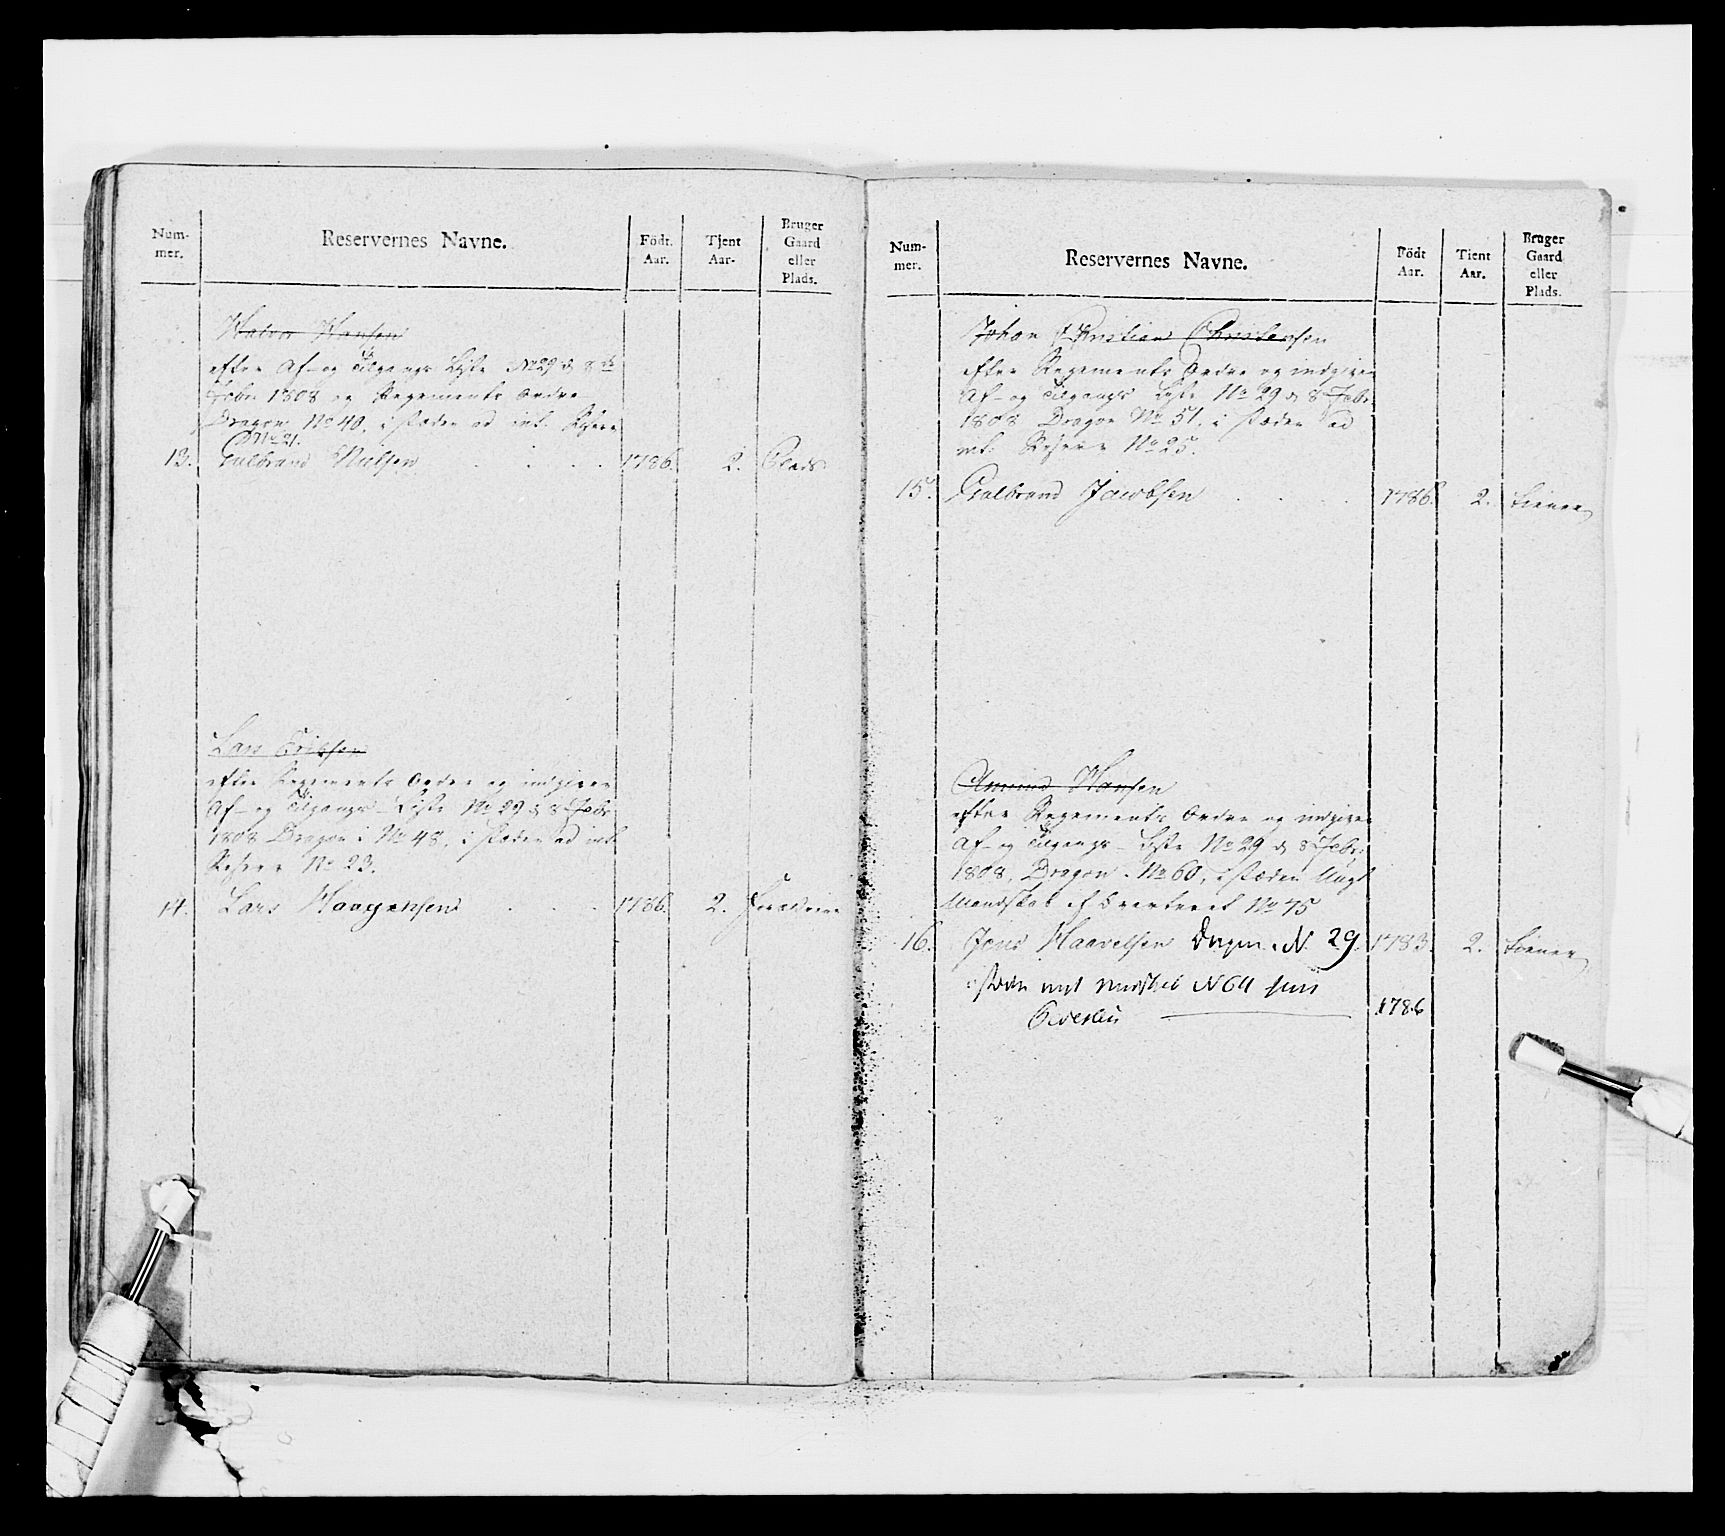 Num-
mer.
Reservernes Navne.
Födt.
Aar.
Tjent
Aar.
Bruger
Gaard
eller
Plads.
Halvor Hansen
efter Af- og Tilgangs Liste No 29 d 8de
Febr 1808 og Regiments Ordre
Dragon No 40, i stæden ad int. Reserv
No 21.
13. Gulbrand Nielsen 1786. 2. Plads
Lars Erichsen
efter Regiments Ordre og indgiven
Af- og Tilgangs-Liste No 29 d 8 Febr
1808 Dragon i No 48, i stæden ad int
Reserve No 23.
14. Lars Haagensen 1786. 2.
Num-
mer.
Reservernes Navne.
Födt
Aar.
Tient
Aar.
Bruger
Gaard
eller
Plads.
Johan Christian Christensen
efter Regiments Ordre og indgiven
Af- og Tilgangs Liste No 29 d 8 Febr
1808 Dragon No 51, i stæden ad
int. Reserve No 25.
15. Gulbrand Jacobsen 1786. 2. tiener
Amund Hansen
efter Regiments Ordre og indgiven
Af- og Tilgangs-Liste No 29 d 8 Febr:
1808, Dragon No 60, i stæden Ungt
Mandskab No 75
16. Jens Haavelsen Dragon N 29. 1783. 2. tiener
i stæden ungt mandskab N 64
1786